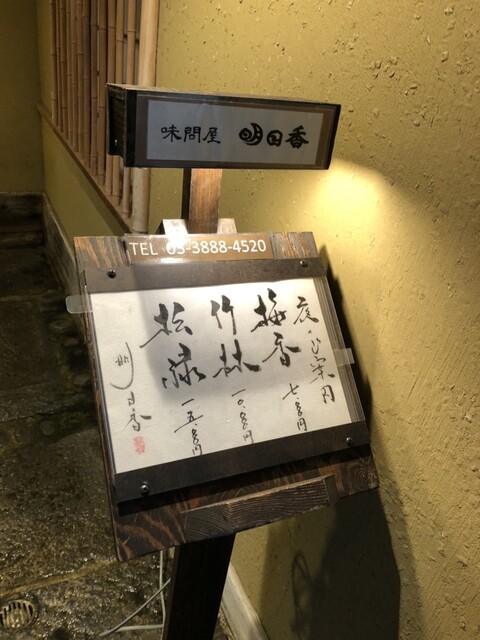 味問屋 明日香
TEL 03-3888-4520
夜のご案内
梅香 七.〇〇〇円
竹林 一〇.〇〇〇円
松緑 一五.〇〇〇円
明日香